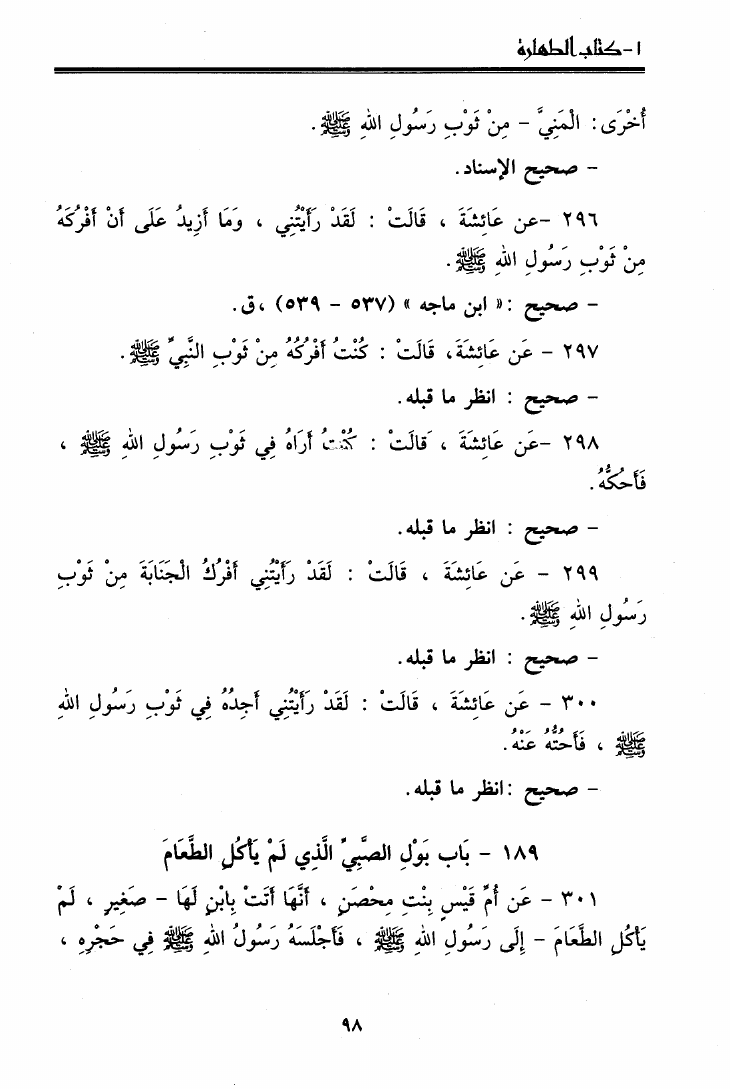 ١- كتاب الطهارة
أُخْرَى : الْمَنِيَّ - مِنْ ثَوْبِ رَسُولِ اللهِ ﷺ .
- صحيح الإسناد .
٢٩٦ -عن عَائِشَةَ ، قَالَتْ : لَقَدْ رَأَيْتُنِي ، وَمَا أَزِيدُ عَلَى أَنْ أَفْرُكَهُ
مِنْ ثَوْبِ رَسُولِ اللهِ ﷺ .
- صحيح : « ابن ماجه » (٥٣٧ - ٥٣٩) ، ق .
٢٩٧ - عَن عَائِشَةَ، قَالَتْ : كُنْتُ أَفْرُكُهُ مِنْ ثَوْبِ النَّبِيِّ ﷺ .
- صحيح : انظر ما قبله .
٢٩٨ -عَن عَائِشَةَ ، قَالَتْ : كُنْتُ أَرَاهُ فِي ثَوْبِ رَسُولِ اللهِ ﷺ ،
فَأَحُكُّهُ .
- صحيح : انظر ما قبله .
٢٩٩ - عَن عَائِشَةَ ، قَالَتْ : لَقَدْ رَأَيْتُنِي أَفْرُكُ الْجَنَابَةَ مِنْ ثَوْبِ
رَسُولِ اللهِ ﷺ .
- صحيح : انظر ما قبله .
٣٠٠ - عَن عَائِشَةَ ، قَالَتْ : لَقَدْ رَأَيْتُنِي أَجِدُهُ فِي ثَوْبِ رَسُولِ اللهِ
ﷺ ، فَأَحُتُّهُ عَنْهُ .
- صحيح :انظر ما قبله .
١٨٩ - بَاب بَوْلِ الصَّبِيِّ الَّذِي لَمْ يَأْكُلِ الطَّعَامَ
٣٠١ - عَن أُمِّ قَيْسٍ بِنْتِ مِحْصَنٍ ، أَنَّهَا أَتَتْ بِابْنٍ لَهَا - صَغِيرٍ ، لَمْ
يَأْكُلِ الطَّعَامَ - إِلَى رَسُولِ اللهِ ﷺ ، فَأَجْلَسَهُ رَسُولُ اللهِ ﷺ فِي حَجْرِهِ ،
٩٨